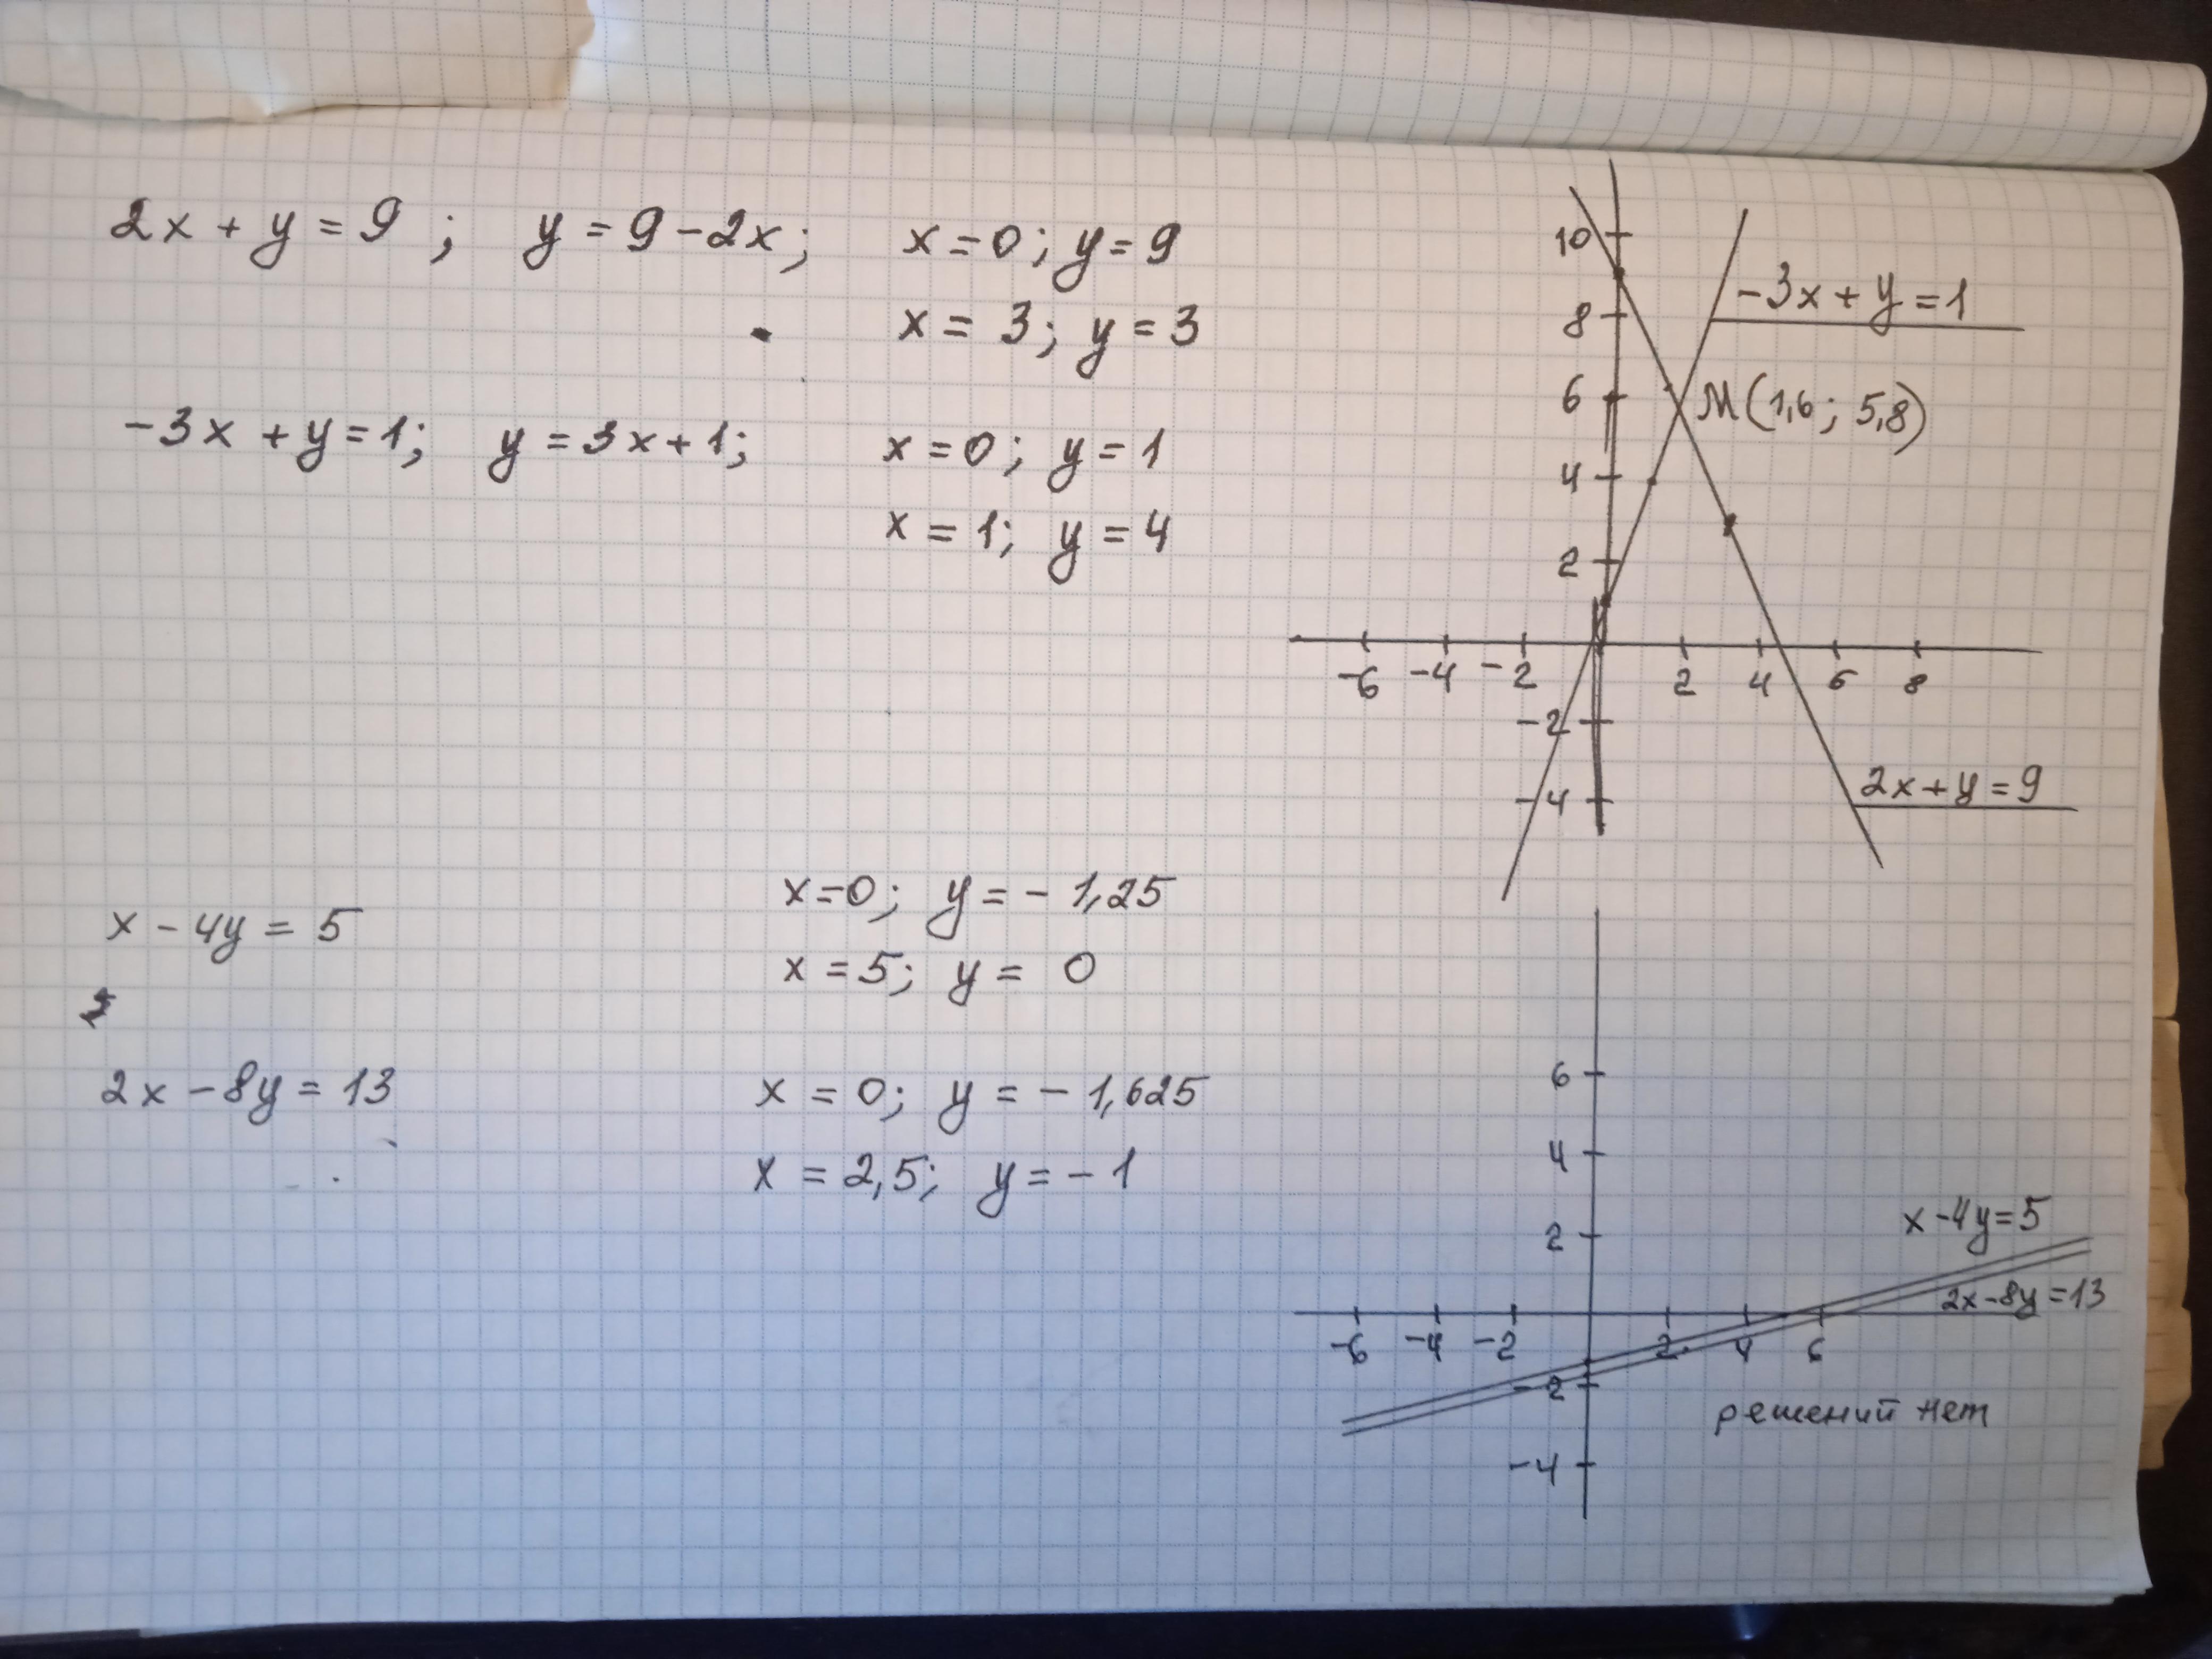 2x + y = 9 ; y = 9 - 2x; x = 0; y = 9
x = 3; y = 3
-3x + y = 1; y = 3x + 1; x = 0; y = 1
x = 1; y = 4
10
8
6
4
2
-6 -4 -2 2 4 6 8
-2
-4
-3x + y = 1
M(1,6; 5,8)
2x + y = 9
x - 4y = 5
x = 0; y = - 1,25
x = 5; y = 0
2x - 8y = 13
x = 0; y = - 1,625
x = 2,5; y = - 1
6
4
2
-6 -4 -2 2 4 6
-2
-4
x - 4y = 5
2x - 8y = 13
решений нет